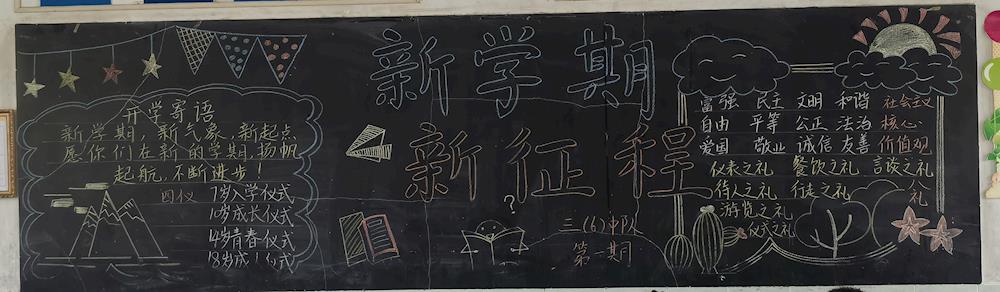 新学期
新征程
三(6)中队
第一期
开学寄语
新学期，新气象，新起点
愿你们在新的学期，扬帆
起航，不断进步！
四仪 7岁入学仪式
10岁成长仪式
14岁青春仪式
18岁成人仪式
富强 民主 文明 和谐 社会主义
自由 平等 公正 法治 核心
爱国 敬业 诚信 友善 价值观
仪表之礼 餐饮之礼 言谈之礼
待人之礼 行走之礼 八礼
游览之礼
仪式之礼
?